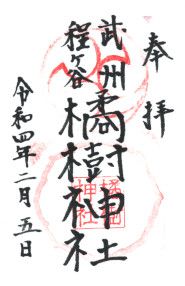 奉拝
武州
程ヶ谷
橘樹神社
令和四年二月五日